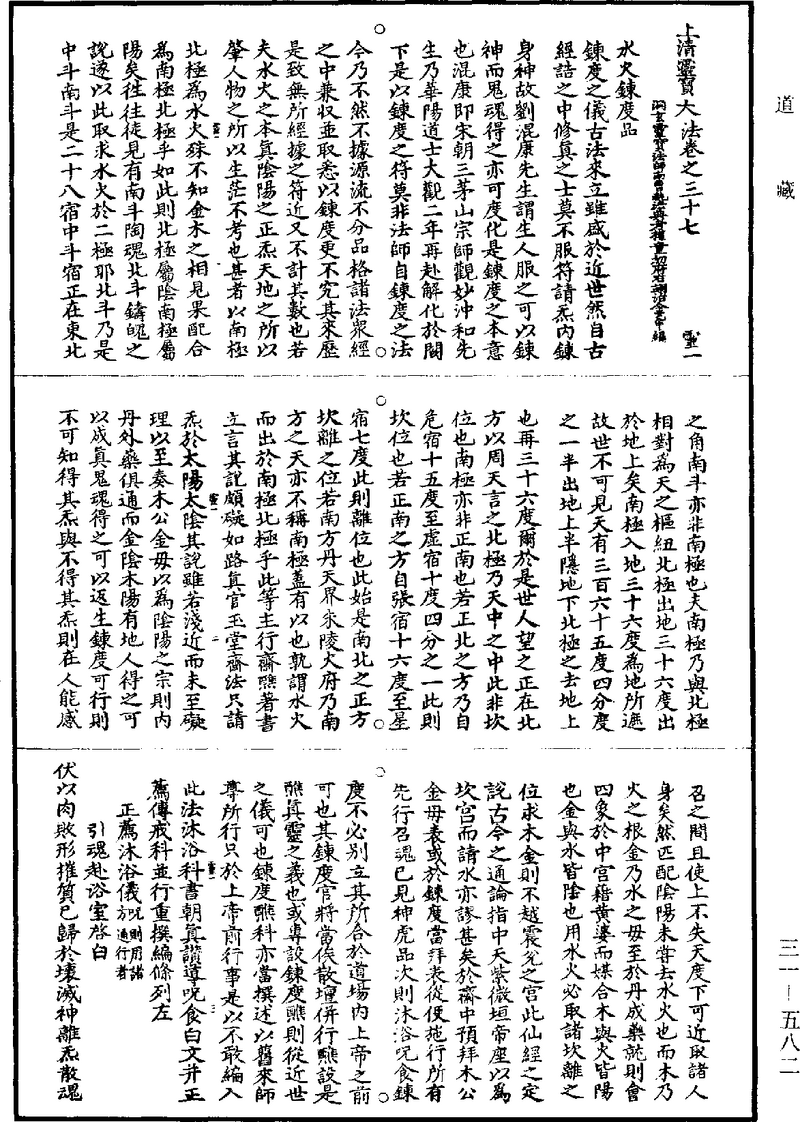 道藏
三一—五八二
上清靈寶大法卷之三十七　靈一
洞玄靈寶法師南曹執法典者權童初府右翊治金允中編
水火鍊度品
鍊度之儀古法來立雖盛於近世然自古
經誥之中修真之士莫不服符請炁內鍊
身神故劉混康先生謂生人服之可以鍊
神而鬼魂得之亦可度化是鍊度之本意
也混康即宋朝三茅山宗師觀妙沖和先
生乃華陽道士大觀二年再赴解化於闕
下是以鍊度之符莫非法師自鍊度之法
今乃不然不據源流不分品格諸法衆經
之中兼收並取悉以鍊度更不究其來歷
是致無所經據之符近又不計其數也若
夫水火之本真陰陽之正炁天地之所以
肇人物之所以生茫不考也甚者以南極
北極為水火殊不知金木之相見果配合
為南極北極乎如此則北極屬陰南極屬
陽矣往往徒見有南斗陶魂北斗鑄魄之
說遂以此取求水火於二極耶北斗乃是
中斗南斗是二十八宿中斗宿正在東北
之角南斗亦非南極也夫南極乃與北極
相對為天之樞紐北極出地三十六度出
於地上矣南極入地三十六度為地所遮
故世不可見天有三百六十五度四分度
之一半出地上半隱地下北極之去地上
也再三十六度爾於是世人望之正在北
方以周天言之北極乃天中之中此非坎
位也南極亦非正南也若正北之方乃自
危宿十五度至虛宿十度四分之一此則
坎位也若正南之方自張宿十六度至星
宿七度此則離位也此始是南北之正方
坎離之位若南方丹天界朱陵火府乃南
方之天亦不稱南極蓋有以也孰謂水火
而出於南極北極乎此等主行齋醮著書
立言其說頗礙如路真官玉堂齋法只請
炁於太陽太陰其說雖若淺近而未至礙
理以至奏木公金母以為陰陽之宗則內
丹外藥俱通而金陰木陽有地人得之可
以成真鬼魂得之可以返生鍊度可行則
不可知得其炁與不得其炁則在人能感
召之間且使上不失天度下可近取諸人
身矣然匹配陰陽未嘗去水火也而木乃
火之根金乃水之母至於丹成藥就則會
四象於中宮藉黃婆而媒合木與火皆陽
也金與水皆陰也用水火必取諸坎離之
位求木金則不越震兌之宮此仙經之定
說古今之通論指中天紫微垣帝座以為
坎宮而請水亦謬甚矣於齋中預拜木公
金母表或於鍊度當拜表從便施行所有
先行召魂已見神虎品次則沐浴呪食鍊
度不必別立其所合於道場內上帝之前
可也其鍊度官將當俟散壇併行醮設是
醮真靈之義也或專設鍊度醮則從近世
之儀可也鍊度醮科亦當撰述以舊來師
尊所行只於上帝前行事是以不敢編入
此法沐浴科書朝真讚導呪食白文并正
薦傳戒科並行重撰編條列左
正薦沐浴儀呪則用諸方通行者
引魂赴浴室啓白
伏以肉敗形摧質已歸於壞滅神離炁散魂